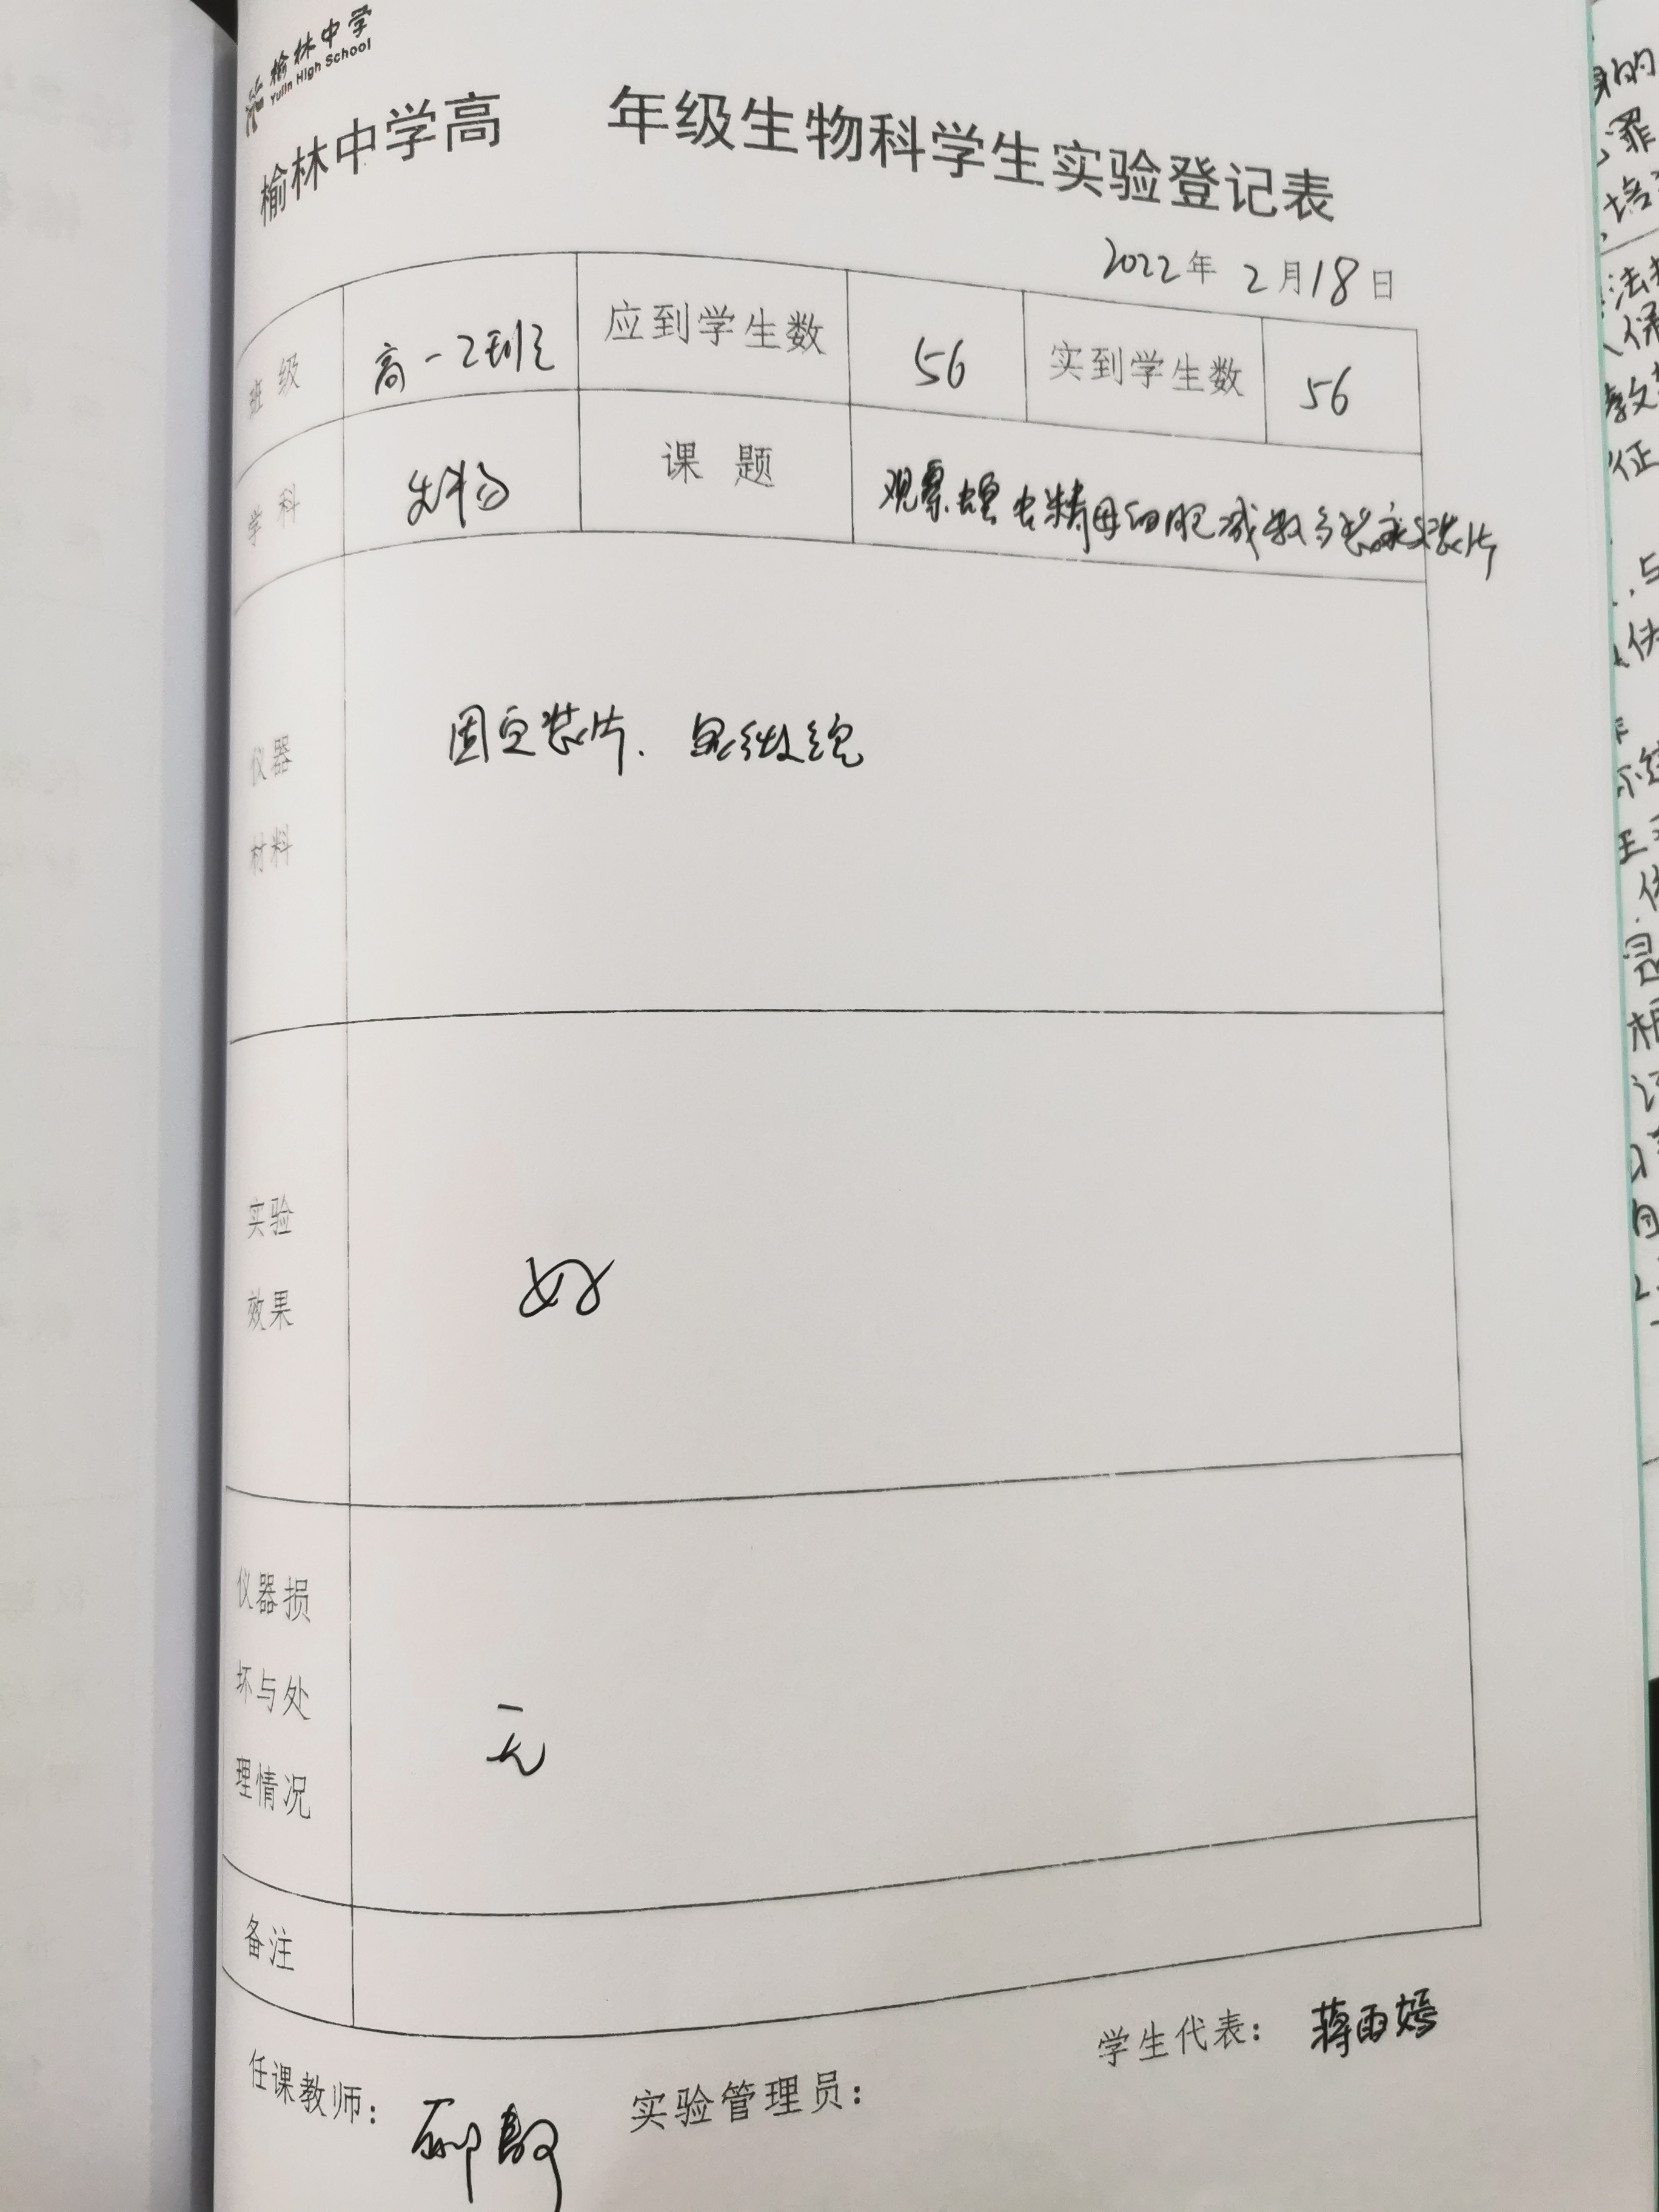 榆林中学
Yulin High School
榆林中学高 年级生物科学生实验登记表
2022年 2月18日
班级 高一2班 应到学生数 56 实到学生数 56
学科 生物 课题 观察蝗虫精母细胞减数分裂永久装片
仪器 固定装片、显微镜
材料
实验
效果 好
仪器损
坏与处 无
理情况
备注
学生代表: 蒋雨嫣
任课教师: 实验管理员: